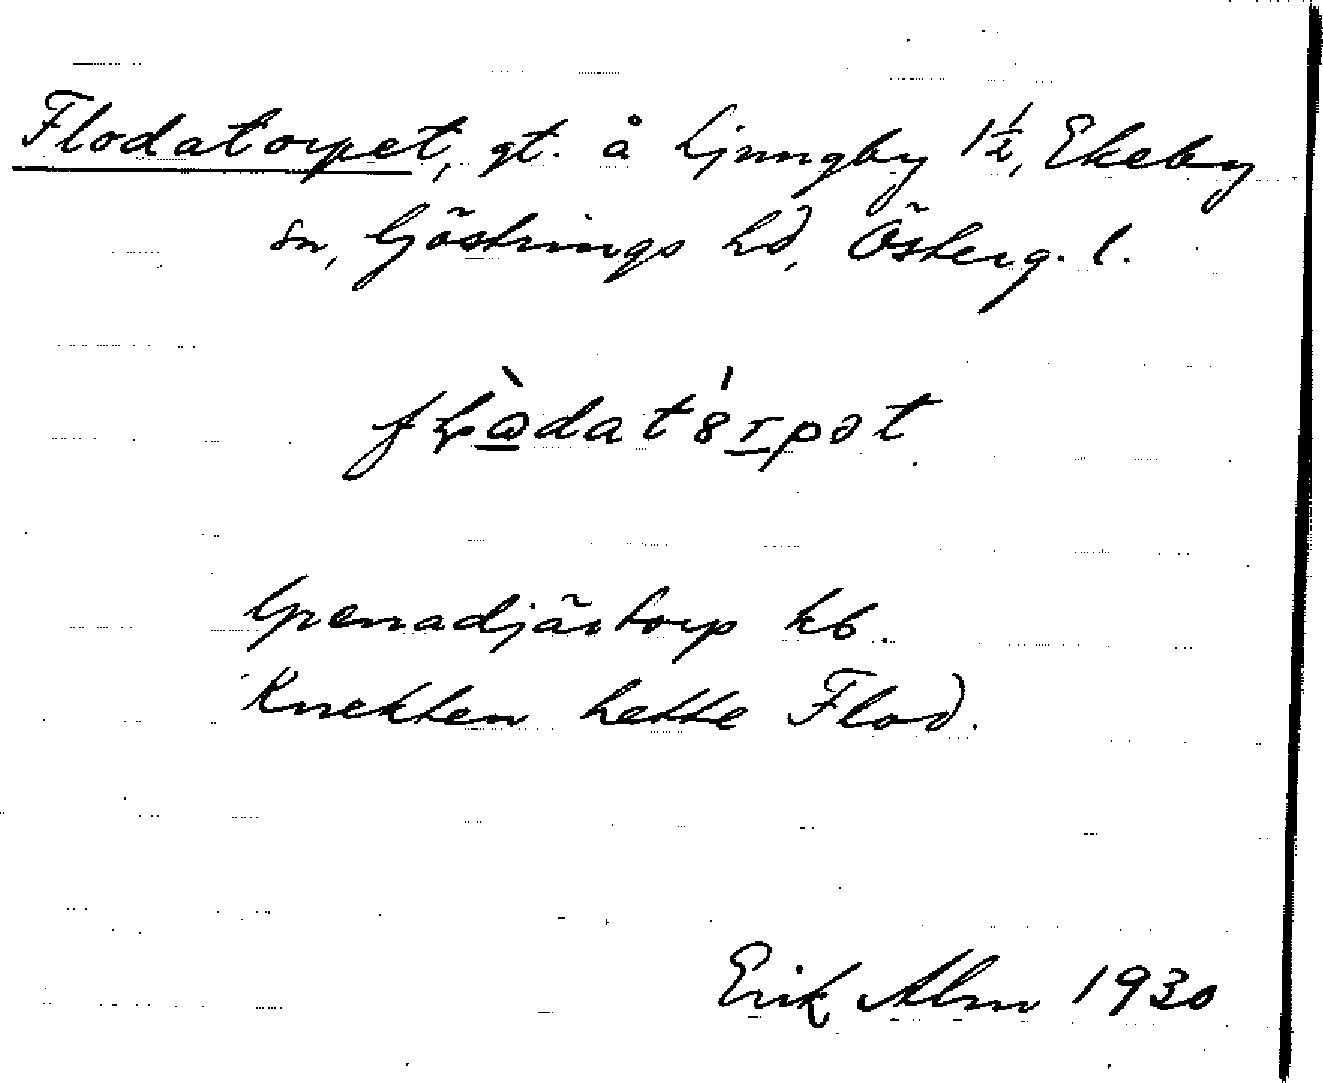 Flodatorpet, gt. å Ljungby 1½, Ekeby
sn, Göstrings hd, Österg. l.
Grenadjärtorp kb.
Knekten hette Flod.
Erik Alm 1930